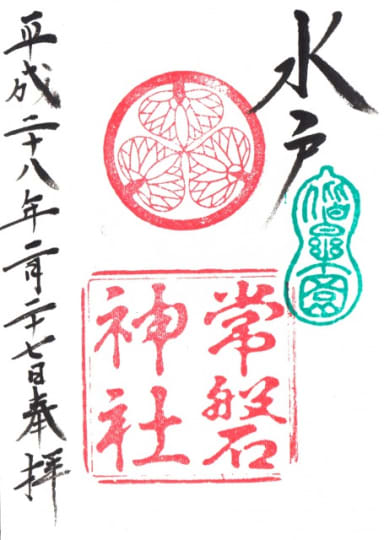 水戸
偕楽園
常磐
神社
平成二十八年二月二十七日奉拝